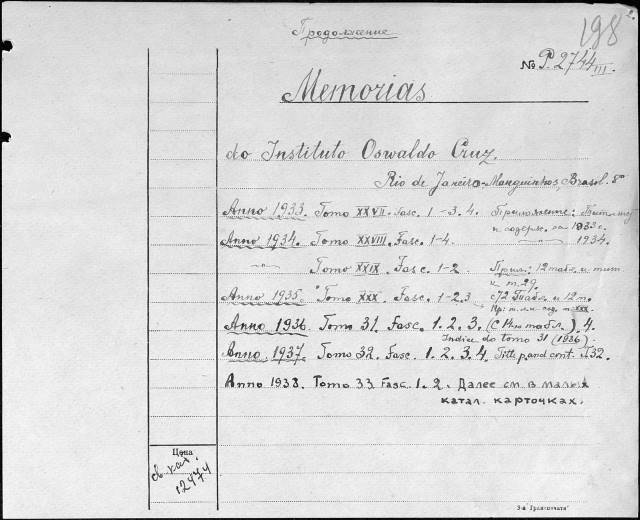 Продолжение
198
2.
№ P. 2744 III.
Memorias
do Instituto Oswaldo Cruz.
Rio de Janeiro-Manguinhos, Brasil. 8°
Anno 1933. Tomo XXVII. Fasc. 1-3. 4. Приложение: Тит. лист
и содерж. за 1933 г.
Anno 1934. Tomo XXVIII. Fasc. 1-4. —〃— 1934.
—〃— Tomo XXIX. Fasc. 1-2. Прил: 12 табл. и тит
к т. 29.
Anno 1935. Tomo XXX. Fasc. 1-2.3 с 72 табл. и 12 т.
XXX.
Anno 1936. Tomo 31. Fasc. 1. 2. 3. (С 14 табл.). 4.
Indice do tomo 31 (1936).
Anno 1937. Tomo 32. Fasc. 1. 2. 3. 4. Titlp. and cont. t. 32.
Anno 1938. Tomo 33 Fasc. 1. 2. Далее см. в малых
катал. карточках.
Цена
св. кат.
12474
З-я Гранпечати